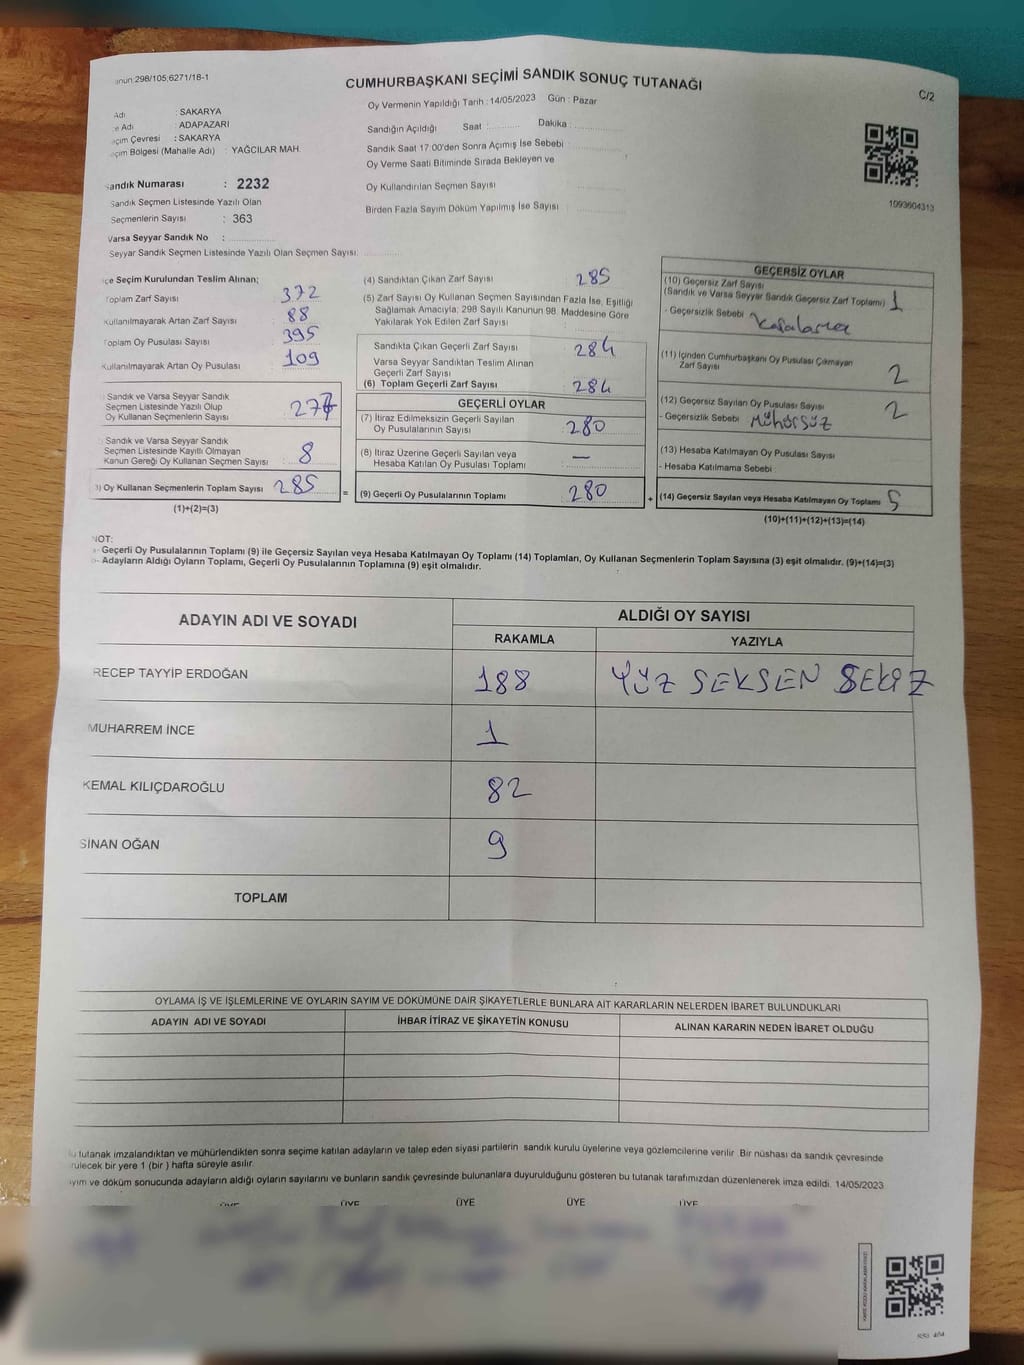 anun 298/105;6271/18-1
CUMHURBAŞKANI SEÇİMİ SANDIK SONUÇ TUTANAĞI
C/2
Adı : SAKARYA
e Adı : ADAPAZARI
eçim Çevresi : SAKARYA
eçim Bölgesi (Mahalle Adı) : YAĞCILAR MAH.
Oy Vermenin Yapıldığı Tarih : 14/05/2023 Gün : Pazar
Sandığın Açıldığı Saat : Dakika :
Sandık Saat 17:00'den Sonra Açımış İse Sebebi :
Oy Verme Saati Bitiminde Sırada Bekleyen ve
Oy Kullandırılan Seçmen Sayısı :
Birden Fazla Sayım Döküm Yapılmış İse Sayısı :
1093604313
Sandık Numarası : 2232
Sandık Seçmen Listesinde Yazılı Olan
Seçmenlerin Sayısı : 363
Varsa Seyyar Sandık No :
Seyyar Sandık Seçmen Listesinde Yazılı Olan Seçmen Sayısı:
lçe Seçim Kurulundan Teslim Alınan;
Toplam Zarf Sayısı : 372
Kullanılmayarak Artan Zarf Sayısı : 88
Toplam Oy Pusulası Sayısı : 395
Kullanılmayarak Artan Oy Pusulası : 109
) Sandık ve Varsa Seyyar Sandık
Seçmen Listesinde Yazılı Olup
Oy Kullanan Seçmenlerin Sayısı : 277
) Sandık ve Varsa Seyyar Sandık
Seçmen Listesinde Kayıtlı Olmayan
Kanun Gereği Oy Kullanan Seçmen Sayısı : 8
3) Oy Kullanan Seçmenlerin Toplam Sayısı : 285 =
(1)+(2)=(3)
(4) Sandıktan Çıkan Zarf Sayısı : 285
(5) Zarf Sayısı Oy Kullanan Seçmen Sayısından Fazla İse, Eşitliği
Sağlamak Amacıyla; 298 Sayılı Kanunun 98. Maddesine Göre
Yakılarak Yok Edilen Zarf Sayısı :
Sandıkta Çıkan Geçerli Zarf Sayısı : 284
Varsa Seyyar Sandıktan Teslim Alınan
Geçerli Zarf Sayısı :
(6) Toplam Geçerli Zarf Sayısı : 284
GEÇERLİ OYLAR
(7) İtiraz Edilmeksizin Geçerli Sayılan
Oy Pusulalarının Sayısı : 280
(8) İtiraz Üzerine Geçerli Sayılan veya
Hesaba Katılan Oy Pusulası Toplamı : —
(9) Geçerli Oy Pusulalarının Toplamı : 280 +
GEÇERSİZ OYLAR
(10) Geçersiz Zarf Sayısı
(Sandık ve Varsa Seyyar Sandık Geçersiz Zarf Toplamı) : 1
- Geçersizlik Sebebi : Karalama
(11) İçinden Cumhurbaşkanı Oy Pusulası Çıkmayan
Zarf Sayısı : 2
(12) Geçersiz Sayılan Oy Pusulası Sayısı : 2
- Geçersizlik Sebebi : Mühürsüz
(13) Hesaba Katılmayan Oy Pusulası Sayısı :
- Hesaba Katılmama Sebebi :
(14) Geçersiz Sayılan veya Hesaba Katılmayan Oy Toplamı : 5
(10)+(11)+(12)+(13)=(14)
NOT:
a- Geçerli Oy Pusulalarının Toplamı (9) ile Geçersiz Sayılan veya Hesaba Katılmayan Oy Toplamı (14) Toplamları, Oy Kullanan Seçmenlerin Toplam Sayısına (3) eşit olmalıdır. (9)+(14)=(3)
b- Adayların Aldığı Oyların Toplamı, Geçerli Oy Pusulalarının Toplamına (9) eşit olmalıdır.
ADAYIN ADI VE SOYADI ALDIĞI OY SAYISI
RAKAMLA YAZIYLA
RECEP TAYYİP ERDOĞAN 188 YÜZ SEKSEN SEKİZ
MUHARREM İNCE 1
KEMAL KILIÇDAROĞLU 82
SİNAN OĞAN 9
TOPLAM
OYLAMA İŞ VE İŞLEMLERİNE VE OYLARIN SAYIM VE DÖKÜMÜNE DAİR ŞİKAYETLERLE BUNLARA AİT KARARLARIN NELERDEN İBARET BULUNDUKLARI
ADAYIN ADI VE SOYADI İHBAR İTİRAZ VE ŞİKAYETİN KONUSU ALINAN KARARIN NEDEN İBARET OLDUĞU
u tutanak imzalandıktan ve mühürlendikten sonra seçime katılan adayların ve talep eden siyasi partilerin sandık kurulu üyelerine veya gözlemcilerine verilir. Bir nüshası da sandık çevresinde
rülecek bir yere 1 (bir ) hafta süreyle asılır.
ayım ve döküm sonucunda adayların aldığı oyların sayılarını ve bunların sandık çevresinde bulunanlara duyurulduğunu gösteren bu tutanak tarafımızdan düzenlenerek imza edildi. 14/05/2023
ÜYE ÜYE ÜYE ÜYE ÜYE